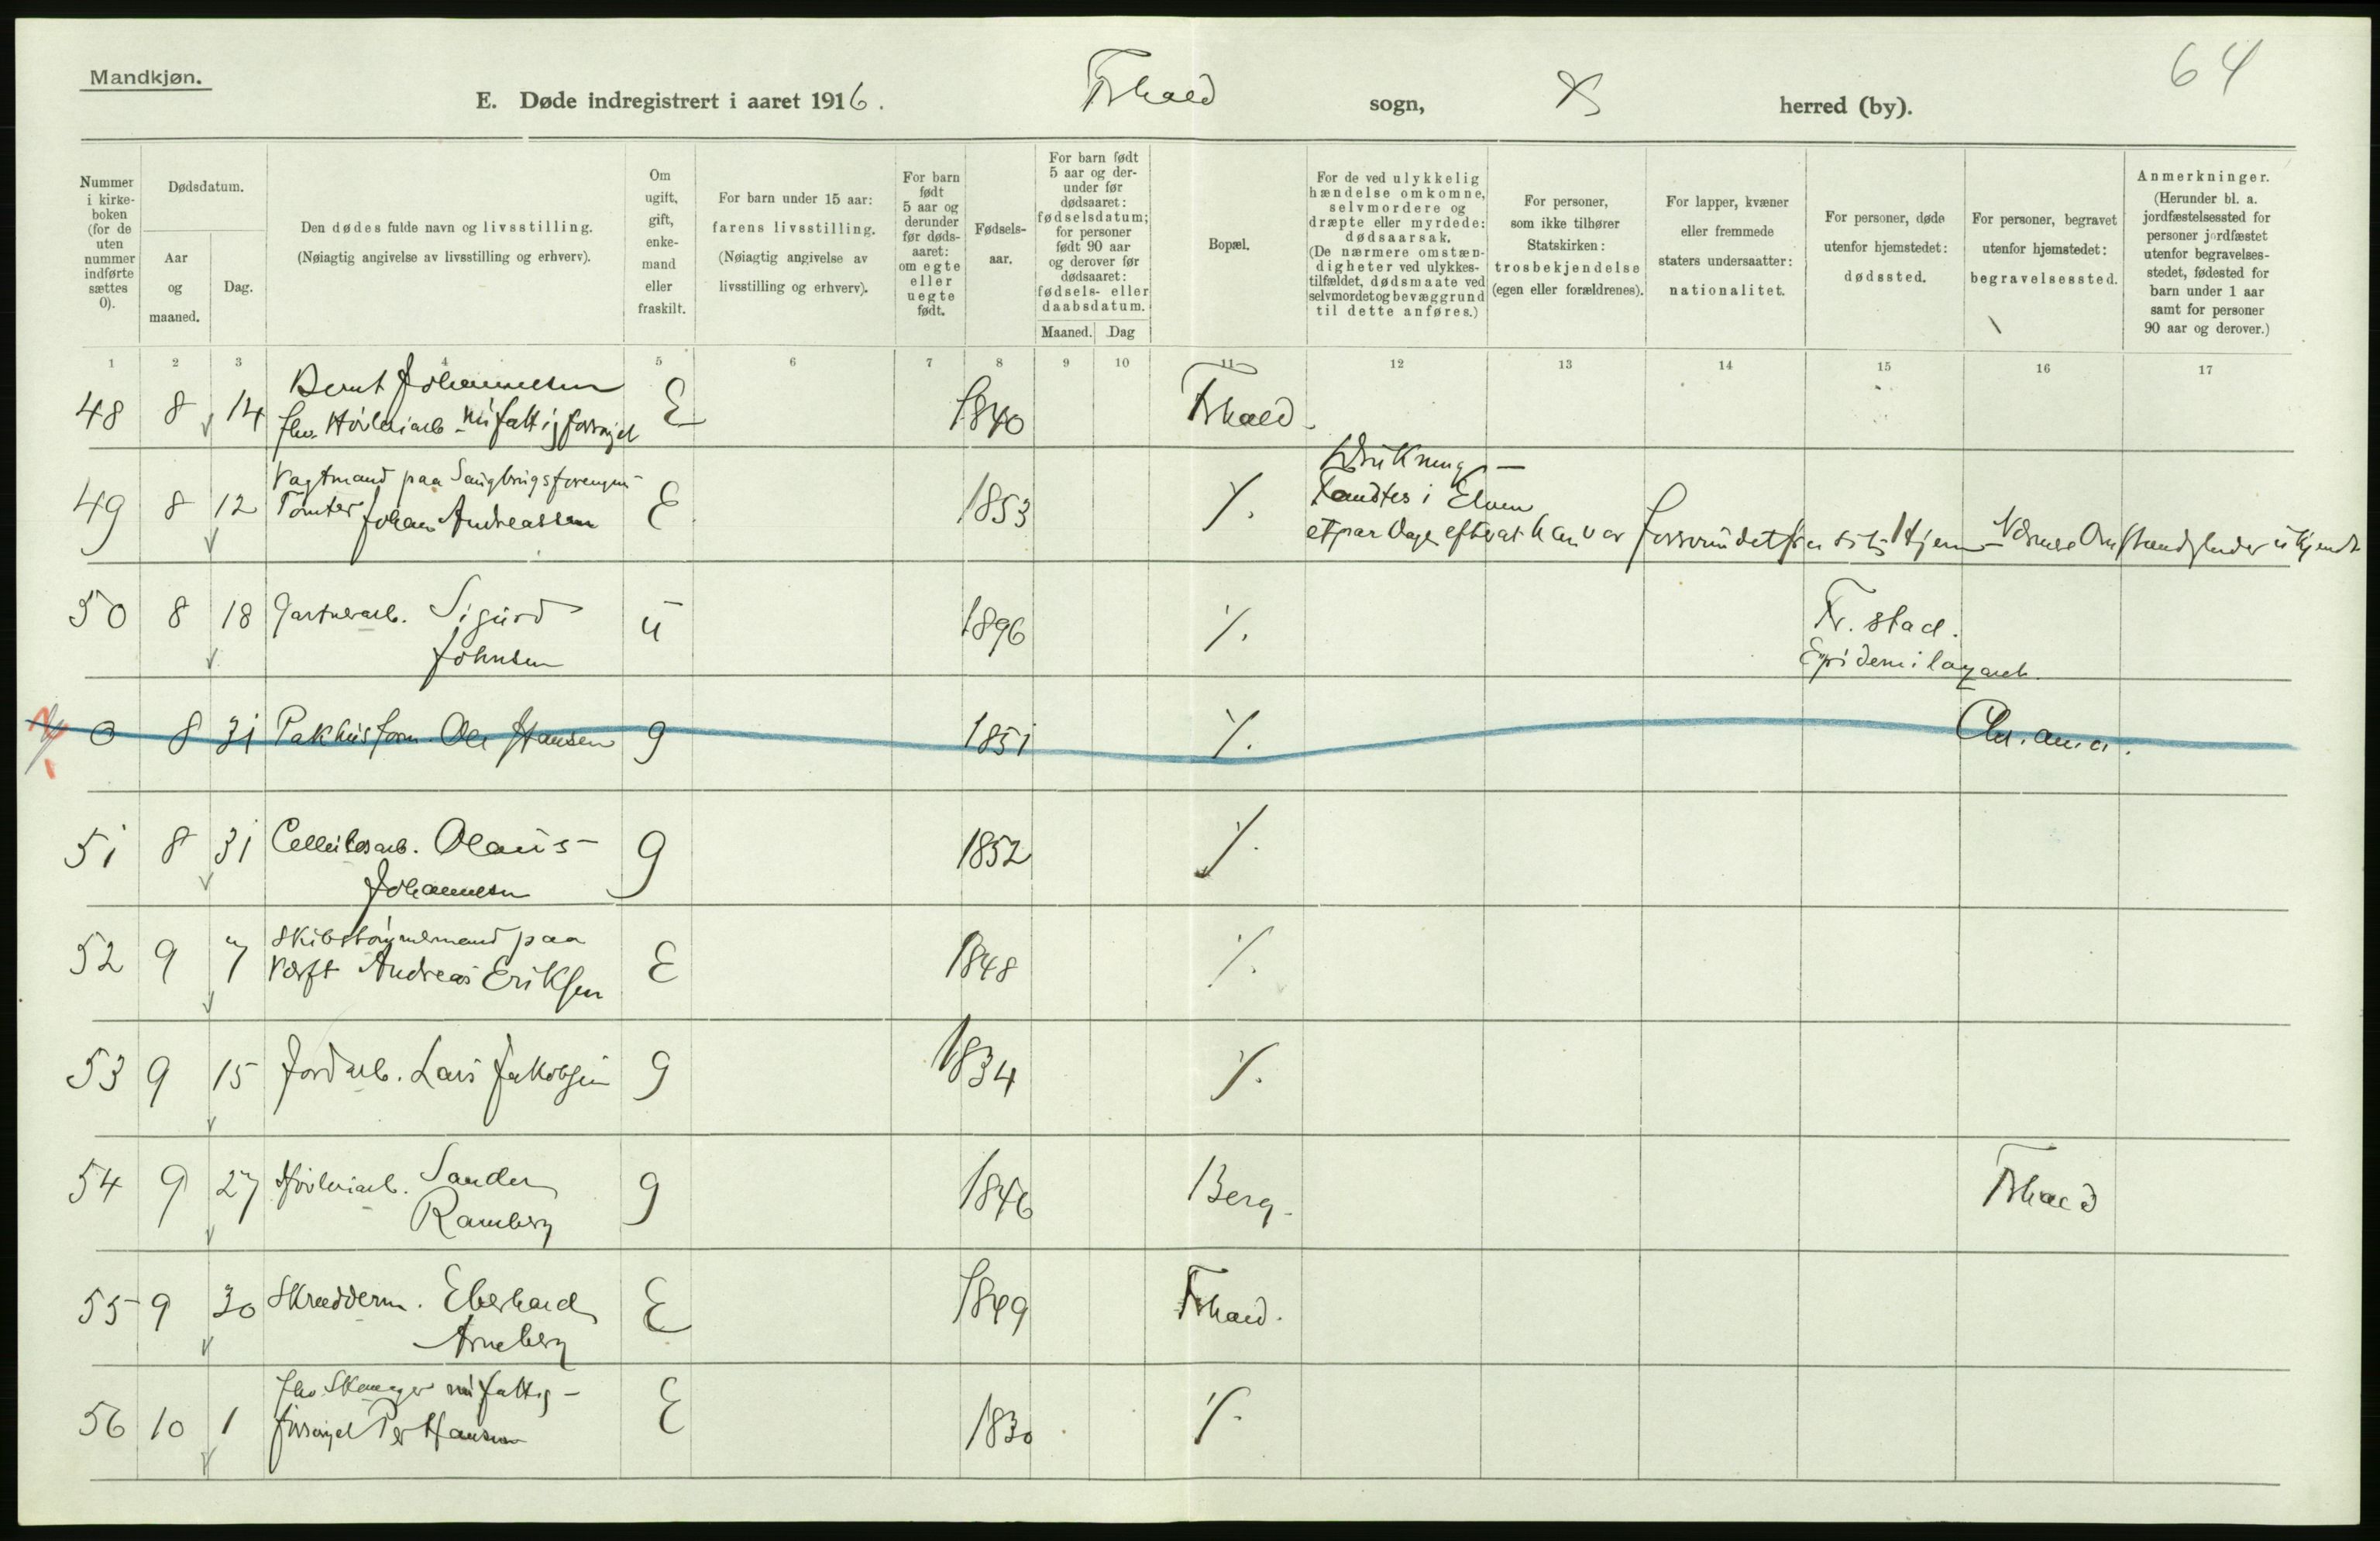 Mandkjøn.
64
E. Døde indregistrert i aaret 1916. Frhald sogn, herred (by).
Nummer i kirke-boken (for de uten nummer indførte sættes 0).
Dødsdatum.
Aar og maaned.
Dag.
Den dødes fulde navn og livsstilling.
(Nøiagtig angivelse av livsstilling og erhverv).
Om ugift, gift, enke-mand eller fraskilt.
For barn under 15 aar: farens livsstilling.
(Nøiagtig angivelse av livsstilling og erhverv).
For barn født 5 aar og derunder før døds-aaret: om egte eller uegte født.
Fødsels-aar.
For barn født 5 aar og der-under før dødsaaret: fødselsdatum; for personer født 90 aar og derover før dødsaaret: fødsels- eller daabsdatum.
Maaned. Dag
Bopæl.
For de ved ulykkelig hændelse omkomne, selvmordere og dræpte eller myrdede: dødsaarsak.
(De nærmere omstæn-digheter ved ulykkes-tilfældet, dødsmaate ved selvmordet og bevæggrund til dette anføres.)
For personer, som ikke tilhører Statskirken: trosbekjendelse (egen eller forældrenes).
For lapper, kvæner eller fremmede staters undersaatter: nationalitet.
For personer, døde utenfor hjemstedet: dødssted.
For personer, begravet utenfor hjemstedet: begravelsessted.
Anmerkninger.
(Herunder bl. a. jordfæstelsessted for personer jordfæstet utenfor begravelses-stedet, fødested for barn under 1 aar samt for personer 90 aar og derover.)
1 2 3 4 5 6 7 8 9 10 11 12 13 14 15 16 17
Bernt Johannesen
48 8 14 fhv. Høvleriarb. nu fattigforsørget E 1840 Frhald
Vagtmand paa Saugbrugsforengens
49 8 12 Tomter Johan Andreassen E 1853 ٪
Drukning -
Fandtes i Elven
et par Dage efterat han var forsvundet fra sit Hjem - Nærmere Omstændigheder ukjendt
50 8 18 Gartnerarb. Sigurd ü 1896 ٪ Fr.stad.
Johnsen Epidemilazareth.
0 8 31 Pakhusform. Ole Hansen g 1851 ٪ Chr.ania.
51 8 31 Cellulosarb. Olaus g 1852 ٪
Johannesen
Skibstømmermand paa
52 9 7 Værft Andreas Eriksen E 1848 ٪
53 9 15 Jordarb. Lars Jakobsen g 1834 ٪
54 9 27 Høvleriarb. Sander g 1846 Berg - Frhald
Ramberg
55 9 30 Skrædderm. Eberhard E 1849 Frhald.
Arneberg
fhv. nu fattig-
56 10 1 forsørget Per Hansen E 1830 ٪